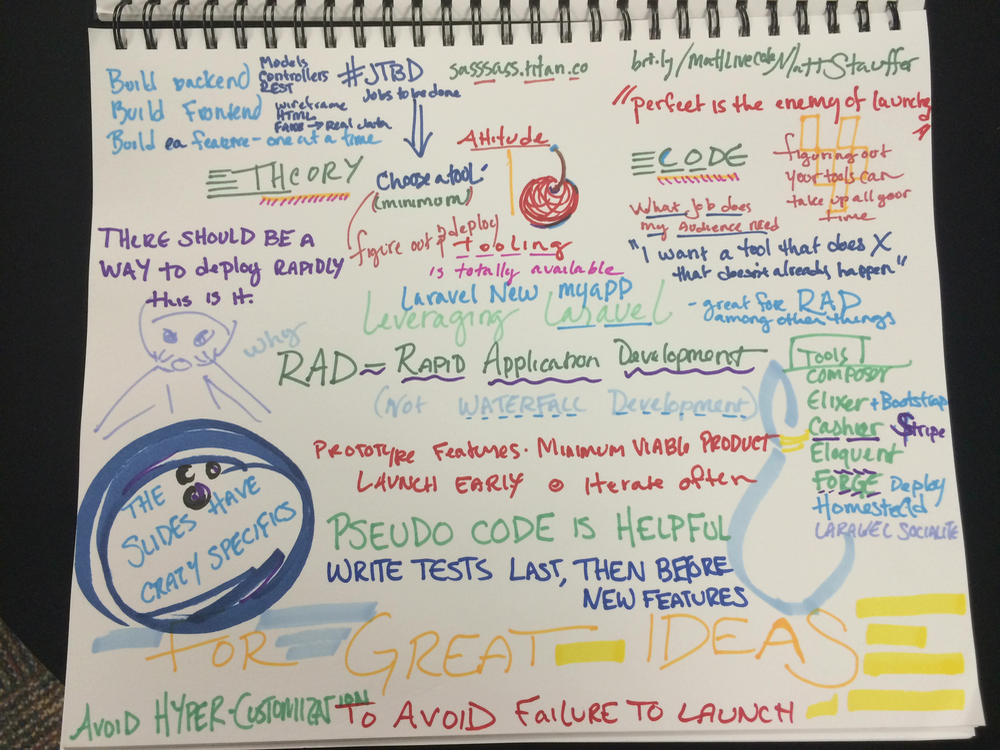 Build backend
Models
Controllers
REST
Build Frontend
wireframe
HTML
FAKE → Real data
Build ea feature - one at a time
#JTBD
Jobs to be done
sasssass.titan.co
Matt Stauffer
"perfect is the enemy of launching"
THEORY
Choose a tool
(minimum)
Attitude
CODE
figuring out
your tools can
take up all your
time
What job does
my Audience need
"I want a tool that does X
that doesn't already happen"
- great for RAD
among other things
THERE SHOULD BE A
WAY to deploy RAPIDLY
this is it.
figure out deploy
tooling
is totally available
Laravel New myapp
Leveraging Laravel
why
RAD = RAPID Application Development
(Not WATERFALL Development)
PROTOTYPE Features. MINIMUM VIABLE PRODUCT
LAUNCH EARLY Iterate often
PSEUDO CODE IS HELPFUL
WRITE TESTS LAST, THEN BEFORE
NEW FEATURES
TOOLS
COMPOSER
Elixer + Bootstrap
Cashier Stripe
Eloquent
FORGE Deploy
Homestead
LARAVEL SOCIALITE
THE
SLIDES HAVE
CRAZY SPECIFICS
FOR GREAT IDEAS
AVOID HYPER-CUSTOMIZATION TO AVOID FAILURE TO LAUNCH